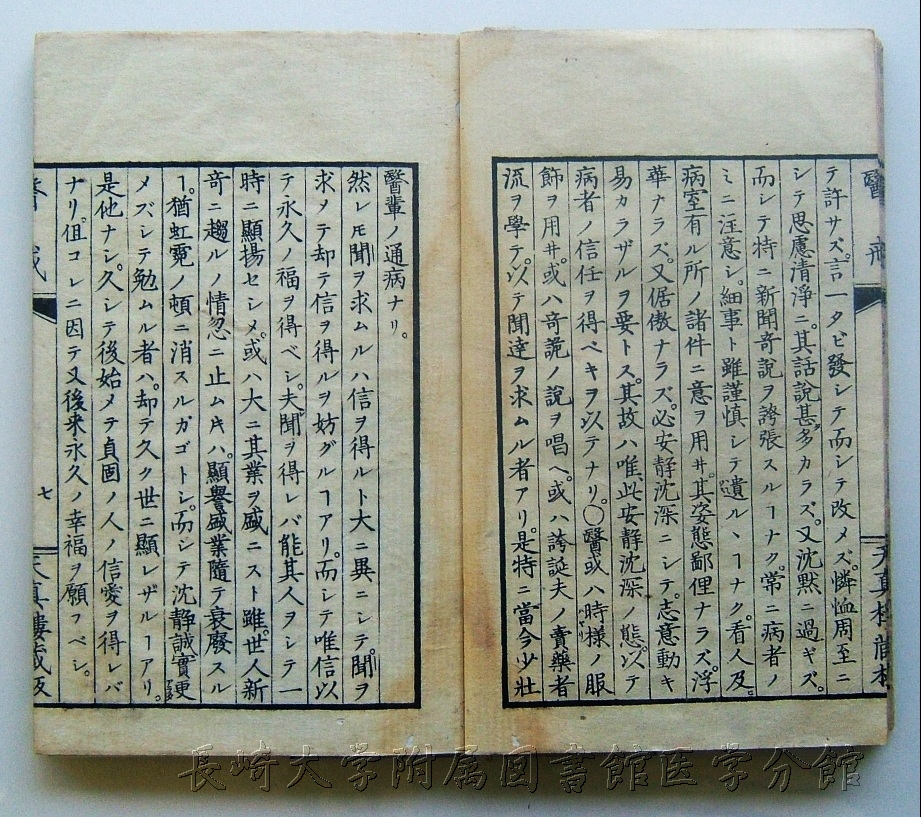 醫戒
天真樓蔵板
テ許サズ。言一タビ發シテ而シテ改メズ。憐恤周至ニ
シテ思慮清淨ニ。其話説甚多カラズ。又沈默ニ過ギズ。
而シテ特ニ新聞奇説ヲ誇張スルヿナク。常ニ病者ノ
ミニ注意シ。細事ト雖謹慎シテ遺ルヽヿナク。看人及
病室有ル所ノ諸件ニ意ヲ用ヰ。其姿態鄙俚ナラズ。浮
華ナラズ。又倨傲ナラズ。必安静沈深ニシテ。志意動キ
易カラザルヲ要トス。其故ハ唯此安静沈深ノ態。以テ
病者ノ信任ヲ得ベキヲ以テナリ。〇醫或ハ時樣ノ服
飾ヲ用ヰ。或ハ奇詭ノ説ヲ唱ヘ。或ハ誇誕夫ノ賣藥者
流ヲ學テ。以テ聞達ヲ求ムル者アリ。是特ニ當今少壯
醫輩ノ通病ナリ。
然レ𪜈聞ヲ求ムルハ信ヲ得ルト大ニ異ニシテ。聞ヲ
求メテ却テ信ヲ得ルヲ妨グルヿアリ。而シテ唯信以
テ永久ノ福ヲ得ベシ。夫聞ヲ得レバ能其人ヲシテ一
時ニ顯揚セシメ。或ハ大ニ其業ヲ盛ニスト雖。世人新
奇ニ趨ルノ情忽ニ止ムキハ。顯譽盛業隨テ衰廢スル
ヿ。猶虹霓ノ頓ニ消スルガゴトシ。而シテ沈静誠實更
メズシテ勉ムル者ハ。却テ久ク世ニ顯レザルヿアリ。
是他ナシ。久シテ後始メテ貞固ノ人ノ信愛ヲ得レバ
ナリ。但コレニ因テ又後來永久ノ幸福ヲ願フベシ。
醫戒
七
天真樓蔵板
長崎大学附属図書館医学分館